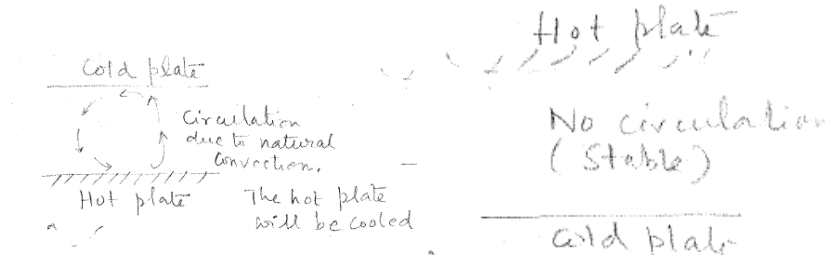 Cold plate
Circulation
due to natural
Convection.
Hot plate
The hot plate
will be cooled
Hot plate
No circulation
(Stable)
Cold plate